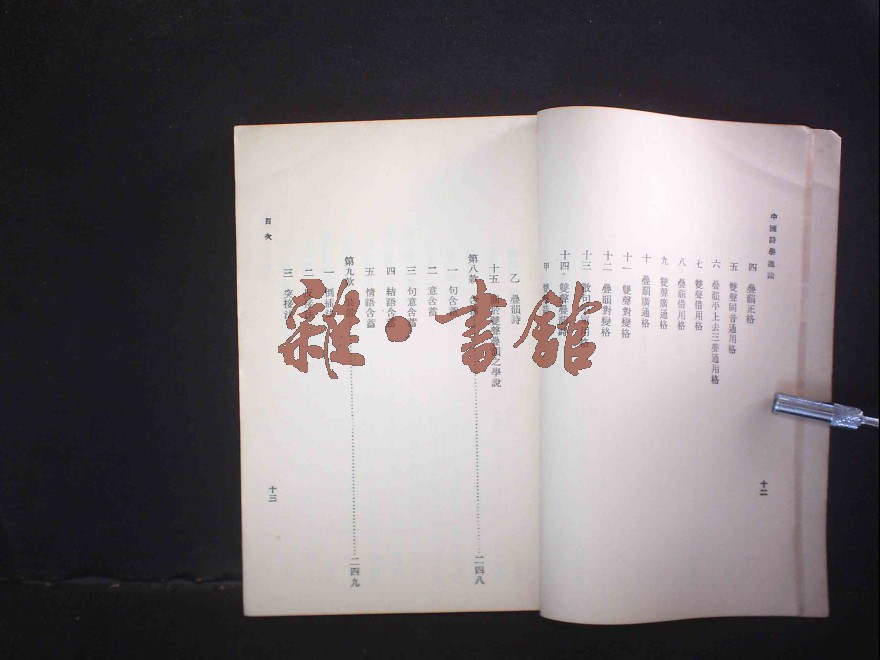 中國詩學通論
四　疊韻正格
五　雙聲同音通用格
六　疊韻平上去三聲通用格
七　雙聲借用格
八　疊韻借用格
九　雙聲廣通格
十　疊韻廣通格
十一　雙聲對變格
十二　疊韻對變格
十三
十四　雙聲疊韻
甲
十二
乙　疊韻詩
十五　雙聲疊韻之學說
第八款　二四八
一　句含蓄
二　意含蓄
三　句意含蓄
四　結語含蓄
五　情語含蓄
第九款　二四九
一
二
三　突接法
目次
十三
雜·書館